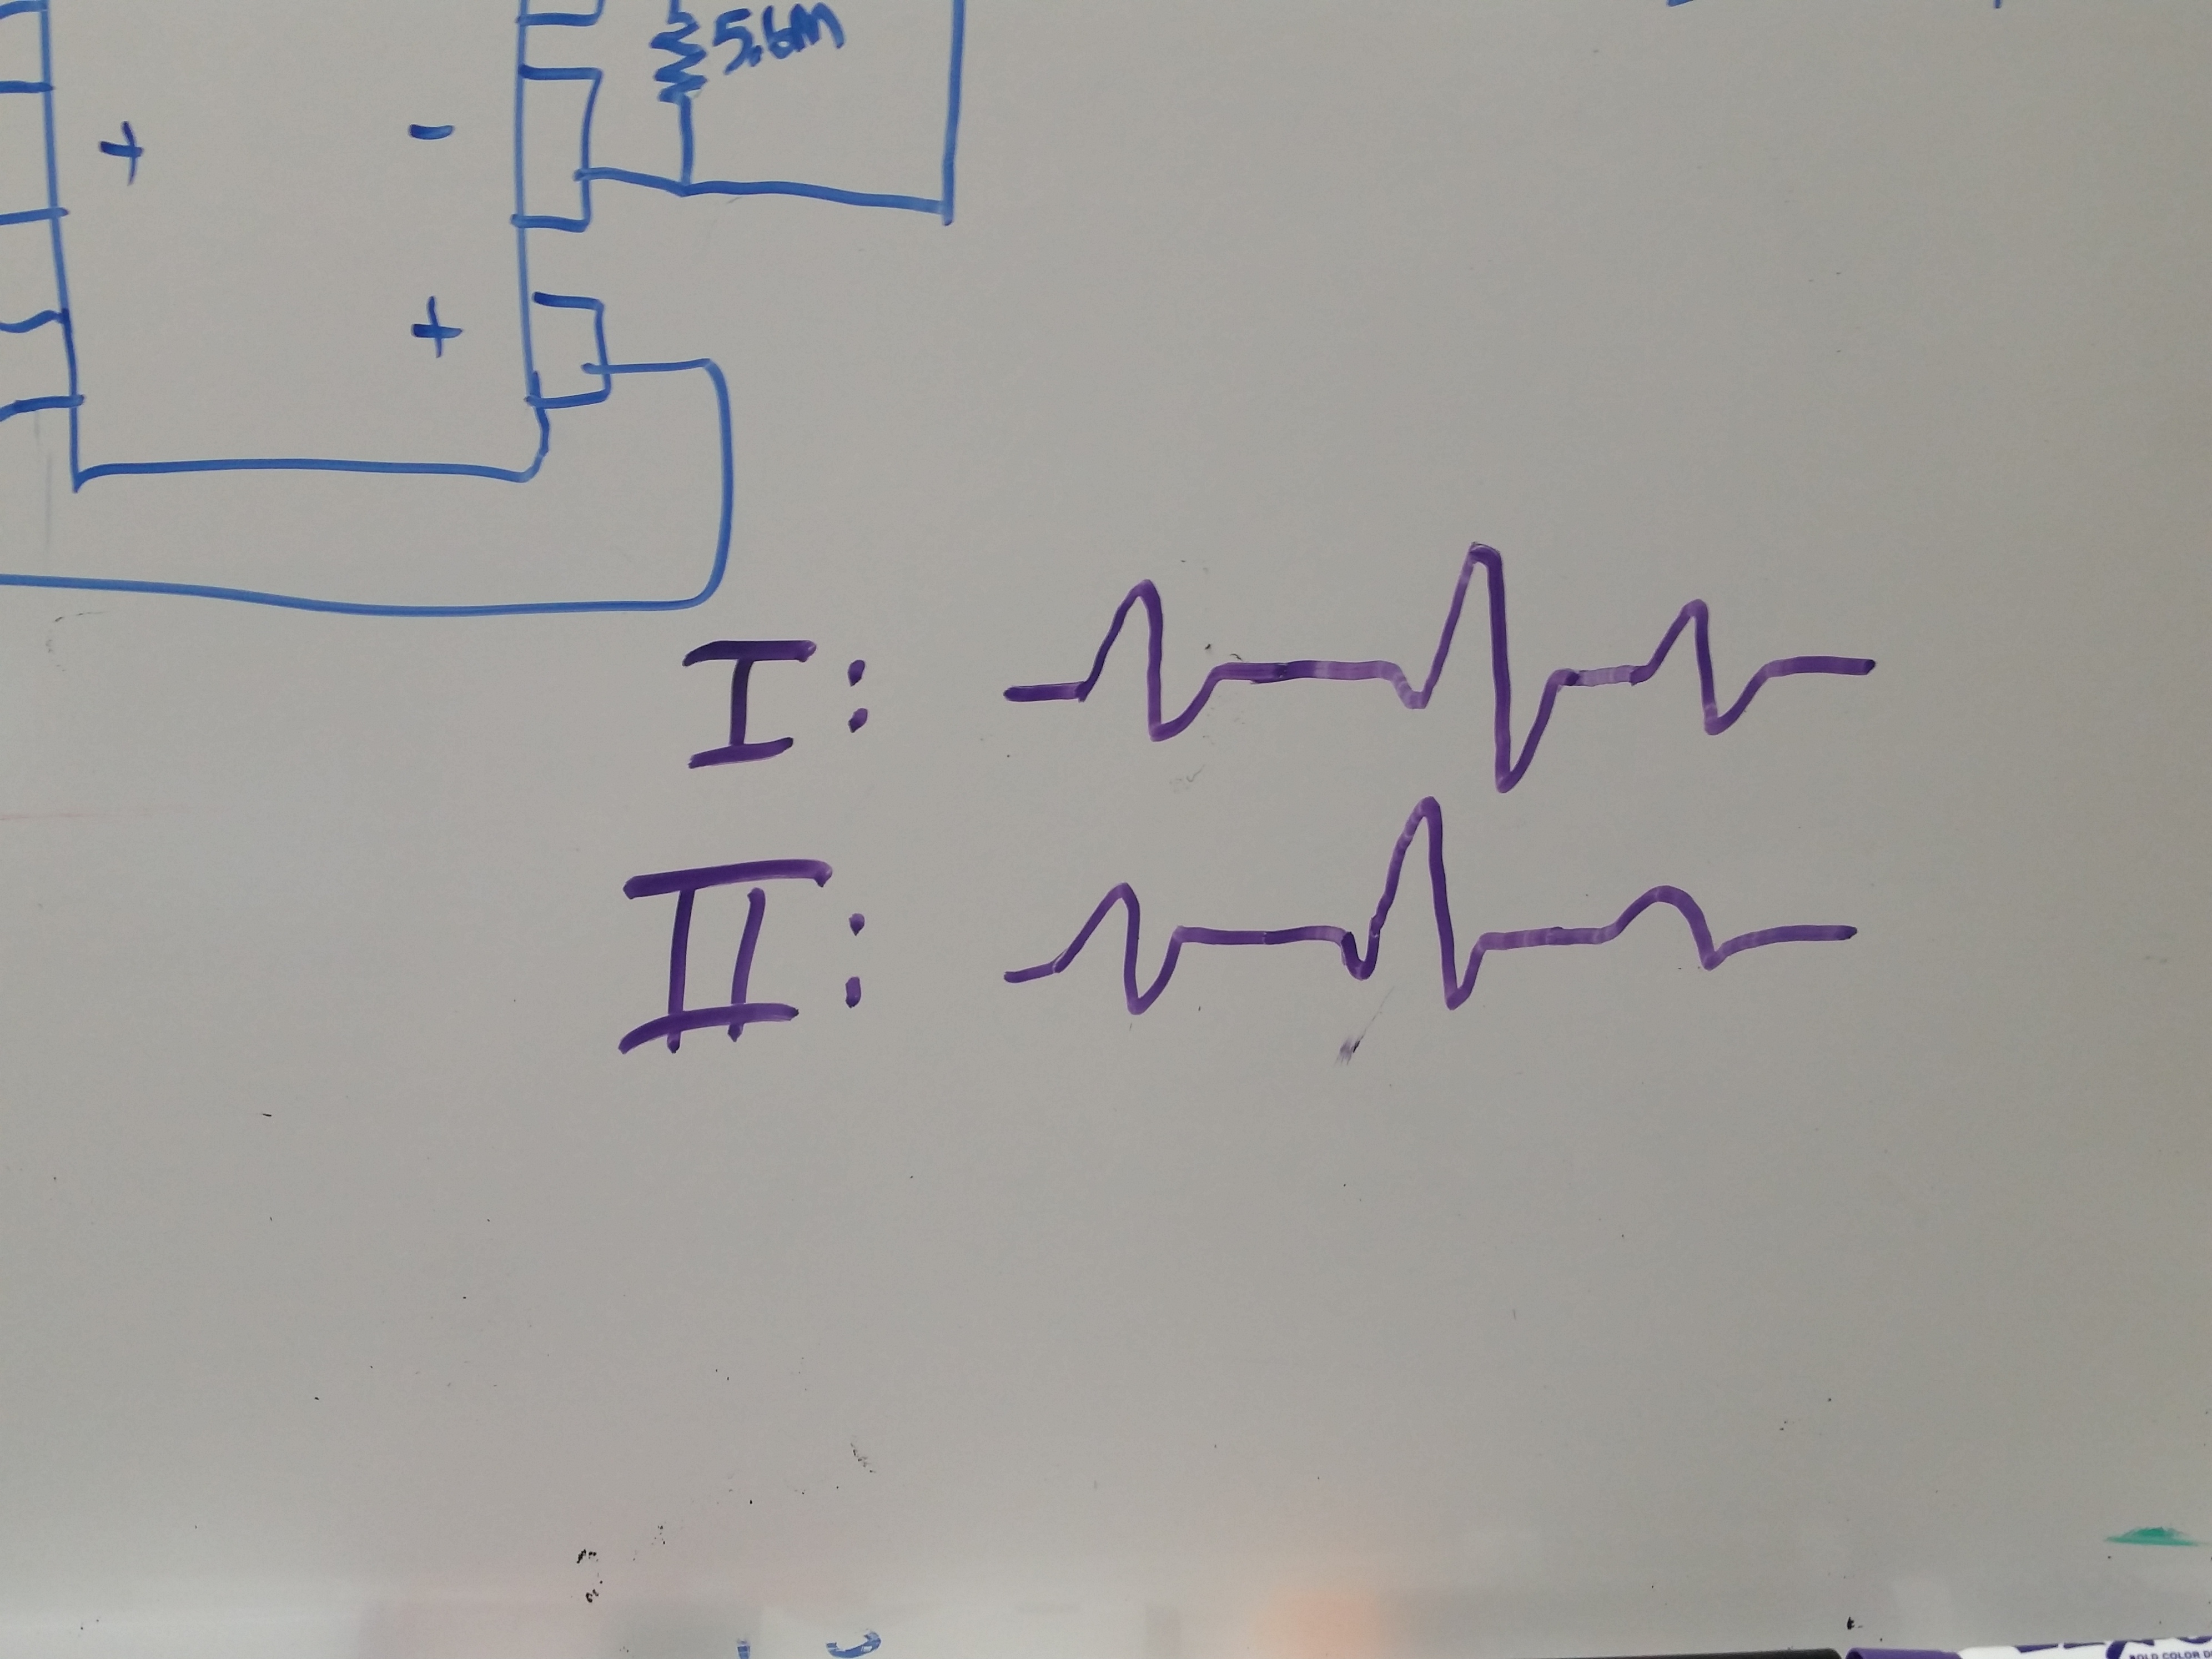 5.6M
+ -
+
I:
II:
BOLD COLOR